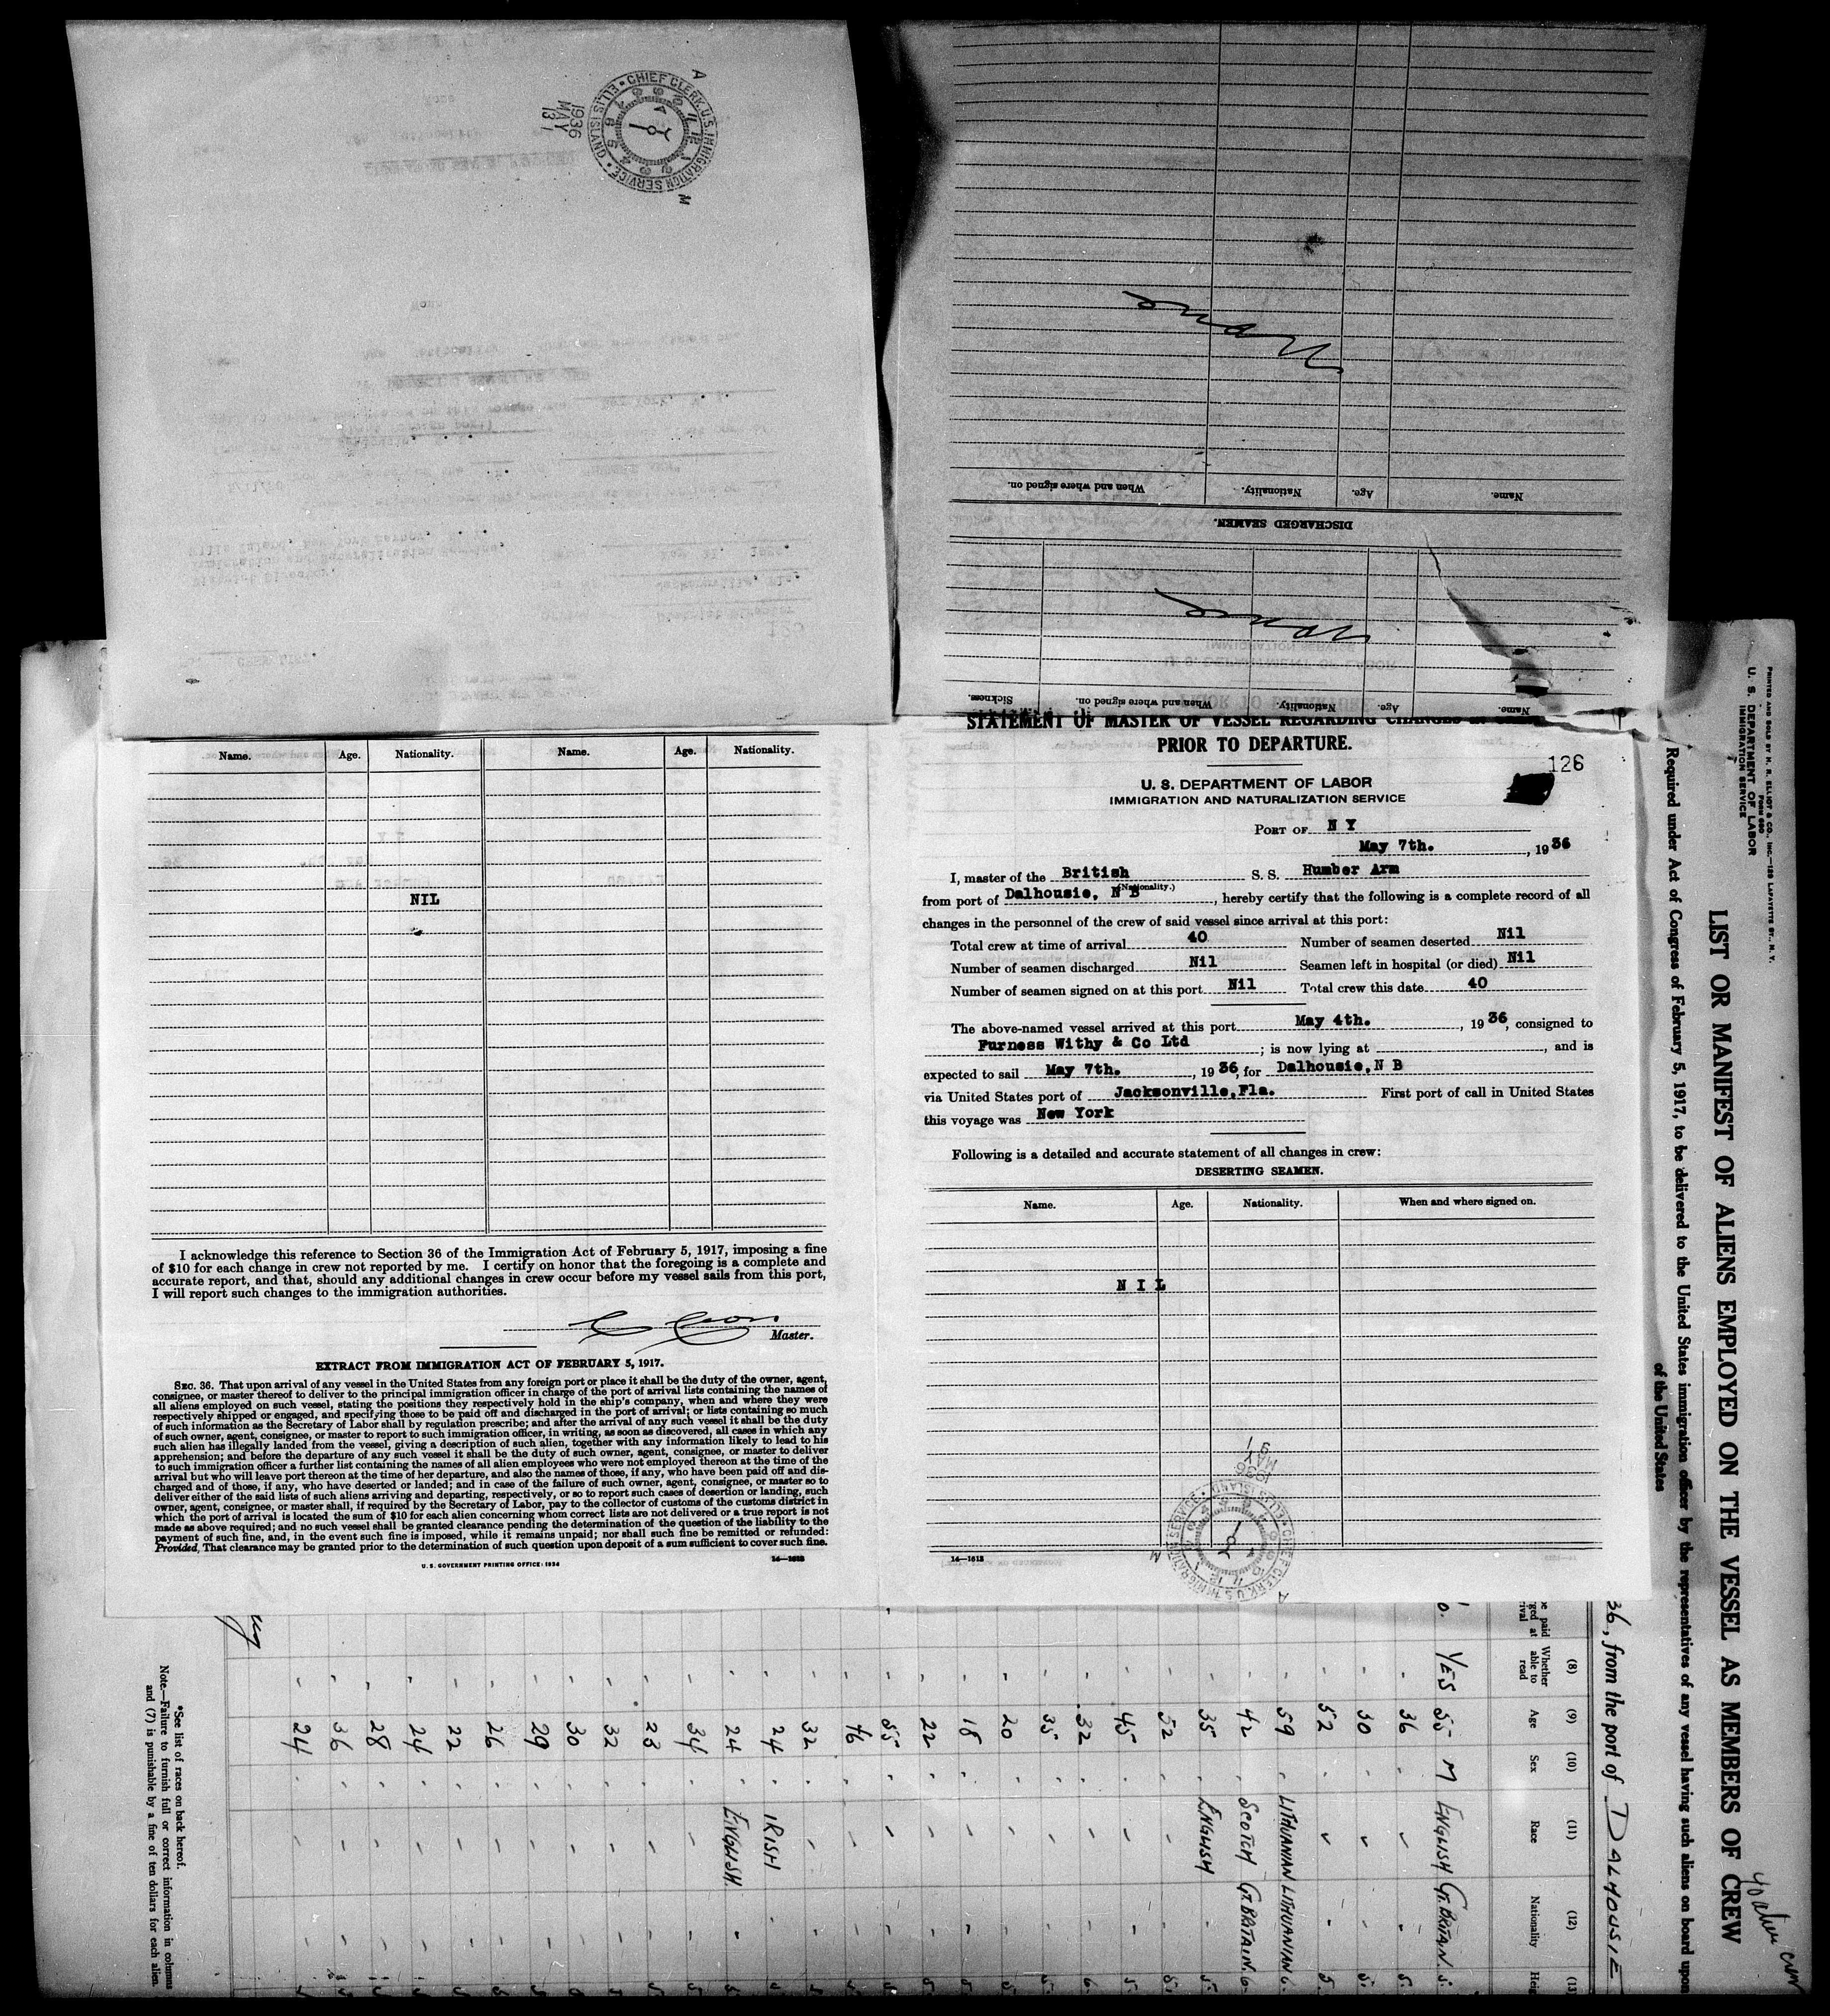 CHIEF CLERK, U.S. IMMIGRATION SERVICE • ELLIS ISLAND •
1936 MAY 13
A M
None
Name. Age. Nationality. When and where signed on.
DISCHARGED SEAMEN.
None
Name. Age. Nationality. When and where signed on. Sickness.
Name. Age. Nationality. Name. Age. Nationality.
NIL
I acknowledge this reference to Section 36 of the Immigration Act of February 5, 1917, imposing a fine
of $10 for each change in crew not reported by me. I certify on honor that the foregoing is a complete and
accurate report, and that, should any additional changes in crew occur before my vessel sails from this port,
I will report such changes to the immigration authorities.
Master.
EXTRACT FROM IMMIGRATION ACT OF FEBRUARY 5, 1917.
SEC. 36. That upon arrival of any vessel in the United States from any foreign port or place it shall be the duty of the owner, agent,
consignee, or master thereof to deliver to the principal immigration officer in charge of the port of arrival lists containing the names of
all aliens employed on such vessel, stating the positions they respectively hold in the ship's company, when and where they were
respectively shipped or engaged, and specifying those to be paid off and discharged in the port of arrival; or lists containing so much
of such information as the Secretary of Labor shall by regulation prescribe; and after the arrival of any such vessel it shall be the duty
of such owner, agent, consignee, or master to report to such immigration officer, in writing, as soon as discovered, all cases in which any
such alien has illegally landed from the vessel, giving a description of such alien, together with any information likely to lead to his
apprehension; and before the departure of any such vessel it shall be the duty of such owner, agent, consignee, or master to deliver
to such immigration officer a further list containing the names of all alien employees who were not employed thereon at the time of the
arrival but who will leave port thereon at the time of her departure, and also the names of those, if any, who have been paid off and dis-
charged and of those, if any, who have deserted or landed; and in case of the failure of such owner, agent, consignee, or master so to
deliver either of the said lists of such aliens arriving and departing, respectively, or so to report such cases of desertion or landing, such
owner, agent, consignee, or master shall, if required by the Secretary of Labor, pay to the collector of customs of the customs district in
which the port of arrival is located the sum of $10 for each alien concerning whom correct lists are not delivered or a true report is not
made as above required; and no such vessel shall be granted clearance pending the determination of the question of the liability to the
payment of such fine, and, in the event such fine is imposed, while it remains unpaid; nor shall such fine be remitted or refunded:
Provided, That clearance may be granted prior to the determination of such question upon deposit of a sum sufficient to cover such fine.
U. S. GOVERNMENT PRINTING OFFICE: 1934 14—1618
STATEMENT OF MASTER OF VESSEL REGARDING CHANGES IN
PRIOR TO DEPARTURE.
126
U. S. DEPARTMENT OF LABOR
IMMIGRATION AND NATURALIZATION SERVICE
PORT OF N Y
May 7th., 1936
I, master of the British S. S. Humber Arm
(Nationality.)
from port of Dalhousie, N B, hereby certify that the following is a complete record of all
changes in the personnel of the crew of said vessel since arrival at this port:
Total crew at time of arrival 40 Number of seamen deserted Nil
Number of seamen discharged Nil Seamen left in hospital (or died) Nil
Number of seamen signed on at this port Nil Total crew this date 40
The above-named vessel arrived at this port May 4th., 1936, consigned to
Furness Withy & Co Ltd; is now lying at , and is
expected to sail May 7th., 1936, for Dalhousie, N B
via United States port of Jacksonville, Fla. First port of call in United States
this voyage was New York
Following is a detailed and accurate statement of all changes in crew:
DESERTING SEAMEN.
Name. Age. Nationality. When and where signed on.
N I L
14—1618
CHIEF CLERK, U.S. IMMIGRATION SERVICE • ELLIS ISLAND •
1936
MAY
A M
PRINTED AND SOLD BY H. R. ELLIOT & CO., INC.—129 LAFAYETTE ST., N. Y.
Form 680
U. S. DEPARTMENT OF LABOR
IMMIGRATION SERVICE
LIST OR MANIFEST OF ALIENS EMPLOYED ON THE VESSEL AS MEMBERS OF CREW
40 alien crew
Required under Act of Congress of February 5, 1917, to be delivered to the United States immigration officer by the representatives of any vessel having such aliens on board upon
of the United States
36, from the port of DALHOUSIE
(8) (9) (10) (11) (12) (13)
Whether able to read Age Sex Race Nationality
YES 55 M ENGLISH GT. BRITAIN 5.
36
30
52
59 LITHUANIAN LITHUANIAN
42 SCOTCH GT. BRITAIN
35 ENGLISH
52
45
32
35
20
18
22
55
46
32
24 IRISH
24 ENGLISH
34
23
32
30
29
26
22
24
28
36
24
*See list of races on back hereof.
Note.—Failure to furnish full or correct information in columns
and (7) is punishable by a fine of ten dollars for each alien.